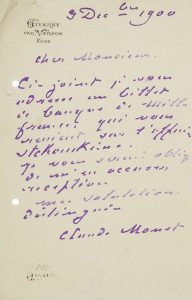 GIVERNY
PAR VERNON
EURE
3 Decbre 1900
Cher Monsieur
Ci-joint je vous
adresse un billet
de banque de mille
francs qui vous
sur l'affaire
Stchoukine.
je vous serai oblig
de m'en accuser
reception
mes salutations
distinguées
Claude Monet